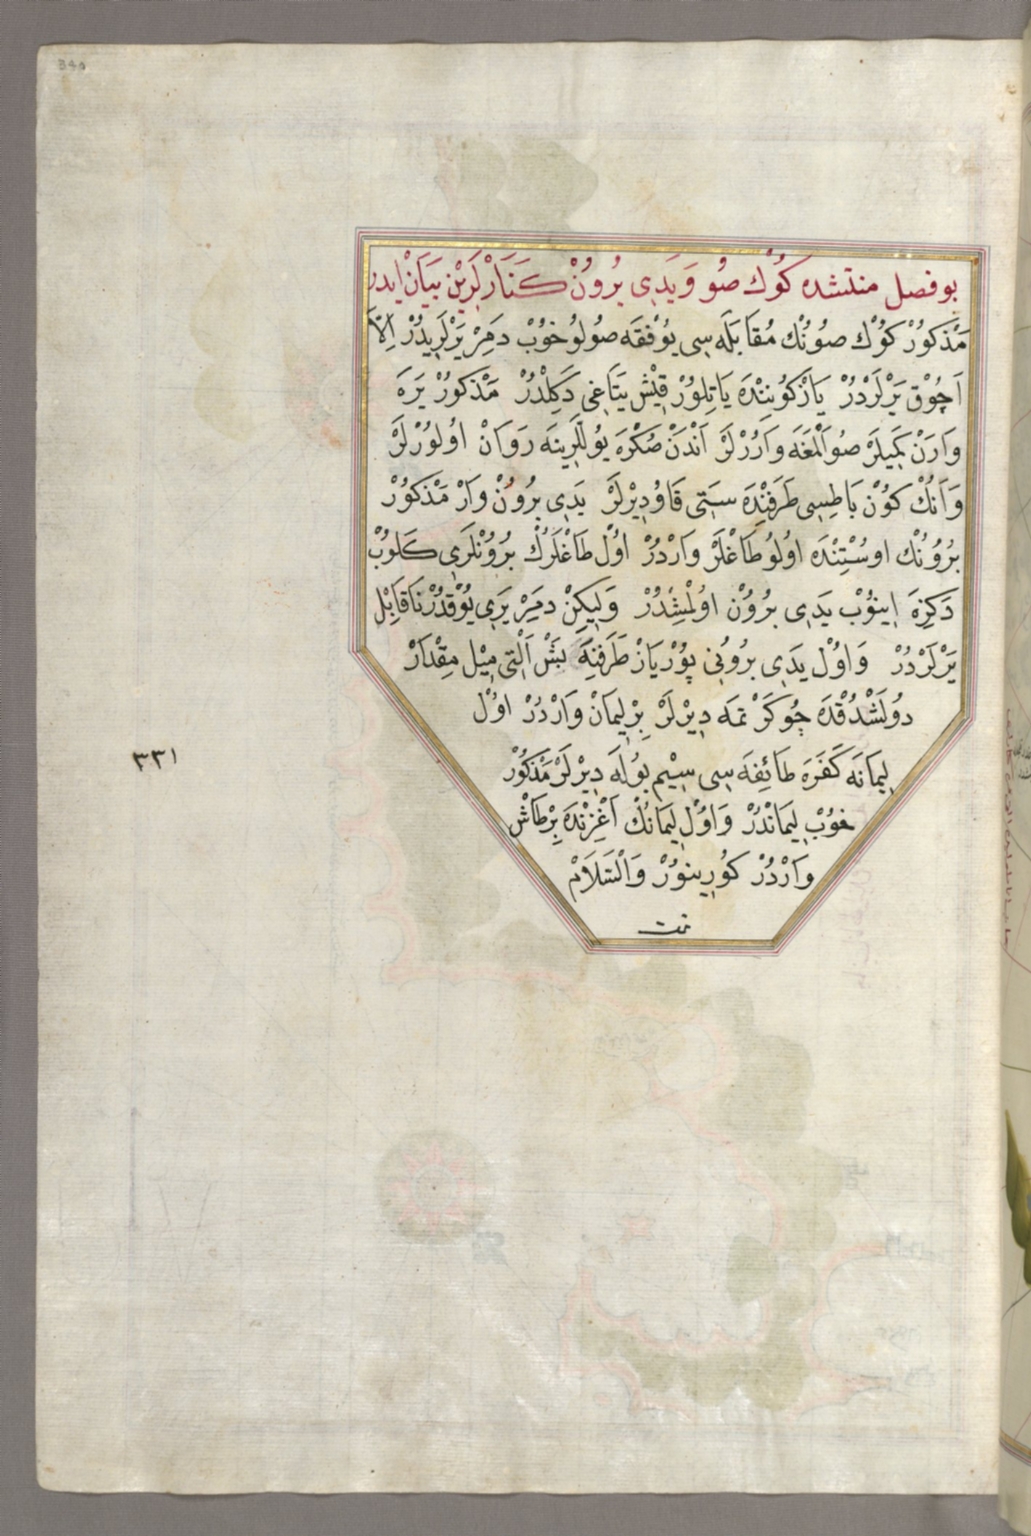 340
بو فصل منتشده كُوك صُو وَ يَدِى بُرُونْ كَنَارْلَرِيْن بَيَانْ ايدر
مَذْكُورْ كُوْك صُوْنُكْ مُقَابَلَه سِى يُوْفْقَه صُولُو خُوبْ دَمِرْ يَرْلَرِيدُرْ اِلاَّ
آچُوْق يَرْلَرْدُرْ يَازْ كُونِنْدَه يَاتِلُورْ قِيْشْ يَتَاغِى دَكِلْدُرْ مَذْكُورْ يَرَه
وَارَنْ كَمِيلَرْ صُو اَلْمَغَه وَارُرْلَرْ اَنْدَنْ صُكْرَه يُوللَّرِينَه رَوَانْ اوُلوُرْلَرْ
وَ اَنُكْ كُوْن بَاطِسِى طَرَفِنْدَه سَبَتِى قَاوُ دِيْرلَرْ يَدِى بُرُونْ وَارْ مَذْكُورْ
بُرُونُكْ اوسُتِنْدَه اوُلوُ طَاغْلَرْ وَارْدُرْ اوُل طَاغْلَرُكْ بُرُونْلَرِى كَلوُبْ
دَكِزَه اِينوُبْ يَدِى بُرُوْن اوُلْمِشْدُرْ وَلِيكِنْ دَمِرْ يَرِى يوُقْدُرْ نَاقَابِلْ
يَرْلَرْدُرْ وَ اوُلْ يَدِى بُرُونِى پُوْرْيَازْ طَرَفِنَه بَشْ اَلْتِى مِيْل مِقْدَارْ
دُولَشْدُقْدَه چُوكَرْتمَه دِيْرلَرْ بِرْ لِيمَانْ وَارْدُرْ اوُلْ
لِيمَانَه كَفَرَه طَائِفَه سِى سِيْمِ بوُلَه دِيْرلَرْ مَذْكُورْ
خُوبْ لِيمَانْدُرْ وَ اوُلْ لِيمَانُكْ اَغْزِنْدَه بِرْ طَاشْ
وَارْدُرْ كوُرِينوُرْ وَالْسَّلاَمْ
تمت
٣٣١